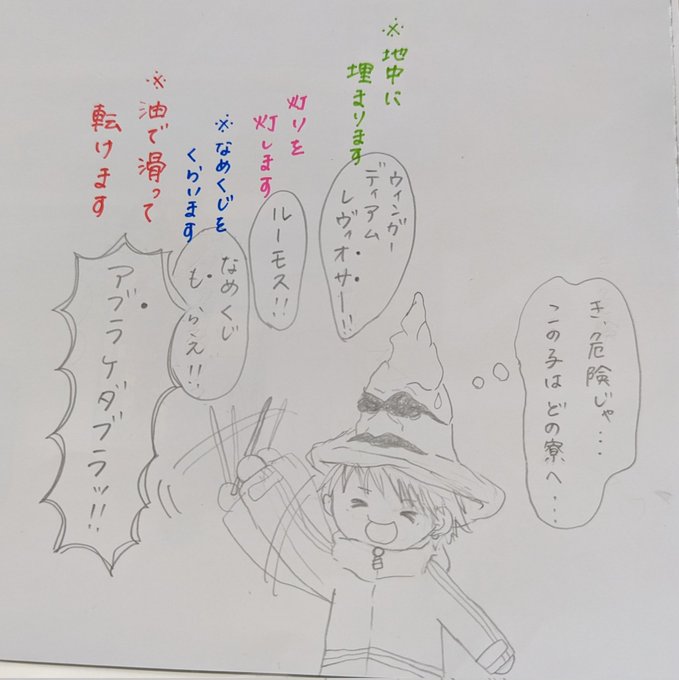 き、危険じゃ・・・
この子はどの寮へ・・・
※地中に
埋まります
ウィンガー
ディアム
レヴィオサー!!
灯りを
灯します
ルーモス!!
※なめくじを
くらいます
なめくじ
もらえ!!
※油で滑って
転けます
アブラケダブラッ!!